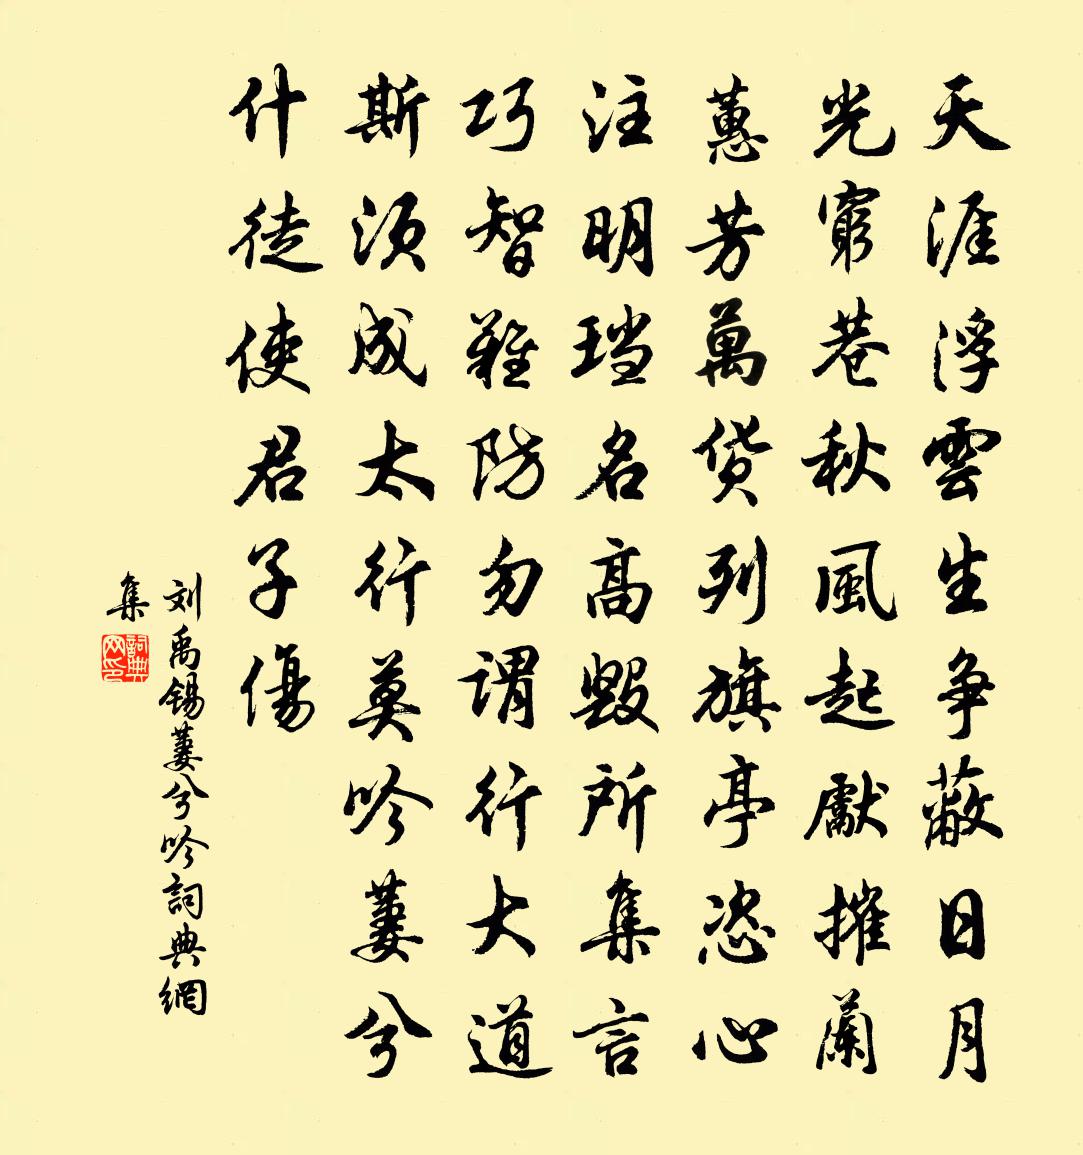 天涯浮雲生争蔽日月
光窮巷秋風起獻摧蘭
蕙芳萬貨列旗亭恣心
注明珰名高毁所集言
巧智難防勿謂行大道
斯須成太行莫吟萋兮
什徒使君子傷
刘禹錫萋兮吟詞典網
集
詞典
网印